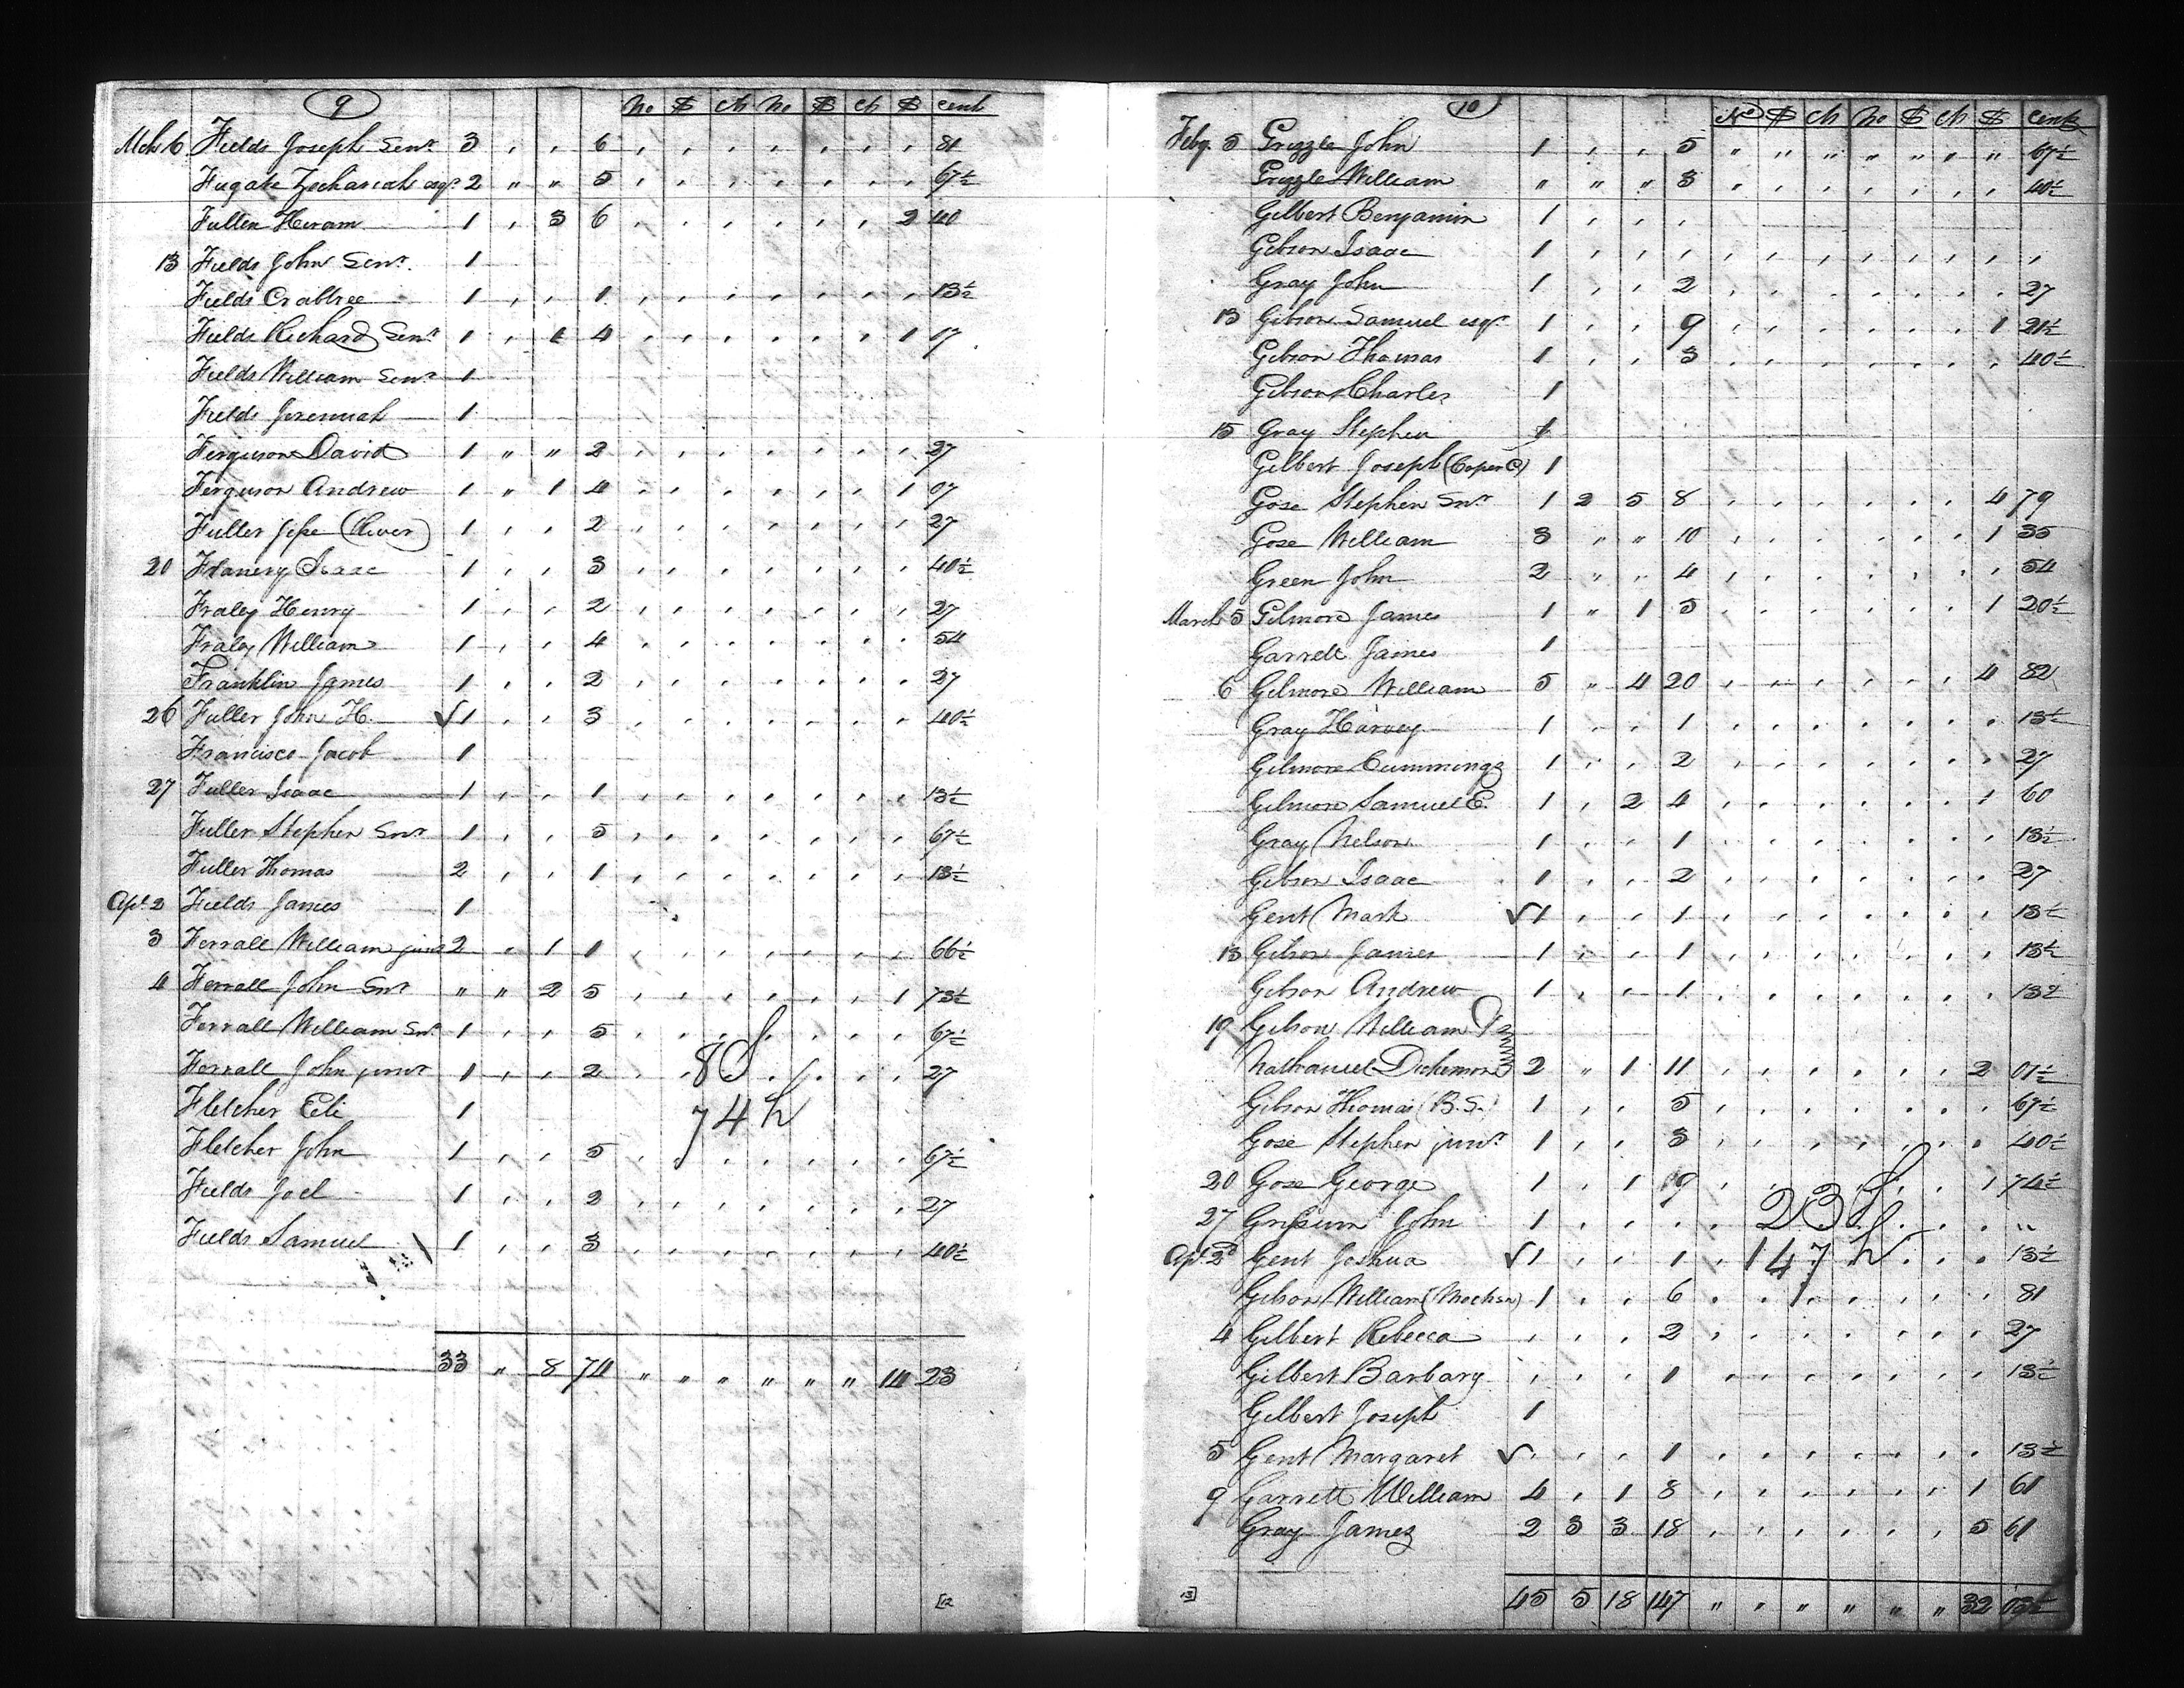 9 No $ Cts No $ Ct $ Cent
Mch 6 Fields Joseph Senr 3 , , 6 , , , , , , , 81
Fugate Zechariah esqr 2 " " 5 , , , , , , , 67½
Fuller Hiram 1 , 3 6 , , , , , , 2 40
13 Fields John Senr. 1
Fields Crabtree 1 , , 1 , , , , , , , 13½
Fields Richard Senr 1 , 1 4 , , , , , , 1 07
Fields William Senr 1
Fields Jeremiah 1
Ferguson David 1 " " 2 , , , , , , , 27
Ferguson Andrew 1 " 1 4 , , , , , , 1 07
Fuller Jesse (River) 1 , , 2 , , , , , , , 27
20 Flanery Isaac 1 , , 3 , , , , , , , 40½
Fraley Henry 1 , , 2 , , , , , , , 27
Fraley William 1 , , 4 , , , , , , , 54
Franklin James 1 , , 2 , , , , , , , 27
26 Fuller John H. √1 , , 3 , , , , , , , 40½
Francisco Jacob 1
27 Fuller Isaac 1 , , 1 , , , , , , , 13½
Fuller Stephen Snr 1 , , 5 , , , , , , , 67½
Fuller Thomas 2 , , 1 , , , , , , , 13½
Apl. 2 Fields James 1
3 Ferrall William junr 2 , 1 1 , , , , , , , 66½
4 Ferrall John Snr " " 2 5 , , , , , , 1 73½
Ferrall William Snr 1 , , 5 , , , , , , , 67½
Ferrall John junr 1 , , 2 , , 8 S , , , 27
Fletcher Eli 1 74 h
Fletcher John 1 , , 5 , , , , , , , 67½
Fields Joel 1 , , 2 , , , , , , , 27
Fields Samuel 1 , , 3 , , , , , , , 40½
33 " 8 74 " " " " " " 14 23
[12
10 No $ Ct No $ Ct $ Cents
Feby. 5 Grizzle John 1 , , 5 " " " " " " " 67½
Grizzle William " " " 3 , , , , , , , 40½
Gilbert Benjamin 1 , , ,
Gibson Isaac 1 , , , , , , , , , , ,
Gray John 1 , , 2 , , , , , , , 27
13 Gibson Samuel esqr. 1 , , 9 , , , , , , 1 21½
Gibson Thomas 1 , , 3 , , , , , , , 40½
Gibson Charles 1
15 Gray Stephen 1
Gilbert Joseph (Coper C) 1
Gose Stephen Snr 1 2 5 8 , , , , , , 4 79
Gose William 3 " " 10 , , , , , , 1 35
Green John 2 " , 4 , , , , , , , 54
March 5 Gilmore James 1 " 1 5 , , , , , , 1 20½
Garrett James 1
6 Gilmore William 5 " 4 20 , , , , , , 4 82
Gray Harvey 1 , , 1 , , , , , , , 13½
Gilmore Cummings 1 , , 2 , , , , , , , 27
Gilmore Samuel E. 1 , 2 4 , , , , , , 1 60
Gray Nelson 1 , , 1 , , , , , , , 13½
Gibson Isaac 1 , , 2 , , , , , , , 27
Gent Mark √1 , , 1 , , , , , , , 13½
13 Gibson James 1 , , 1 , , , , , , , 13½
Gibson Andrew 1 , , 1 , , , , , , , 13½
19 Gibson William
Nathaniel Dickenson 2 " 1 11 , , , , , , 2 01½
Gibson Thomas (B.S.) 1 , , 5 , , , , , , , 67½
Gose Stephen junr. 1 , , 3 , , , , , , , 40½
20 Gose George 1 , 1 9 , , , , , , 1 74½
27 Grissum John 1 , , , , 23 S , , , "
Apl. 2d Gent Joshua √1 , , 1 , 147 h , , , 13½
Gibson William (Mockson) 1 , , 6 , , , , , , , 81
4 Gilbert Rebecca , , , 2 , , , , , , , 27
Gilbert Barbary , , , 1 , , , , , , , 13½
Gilbert Joseph 1
5 Gent Margaret √ , , , 1 , , , , , , , 13½
9 Garrett William 4 , 1 8 , , , , , , 1 61
Gray James 2 3 3 18 , , , , , , 5 61
13] 45 5 18 147 " " " " " " 32